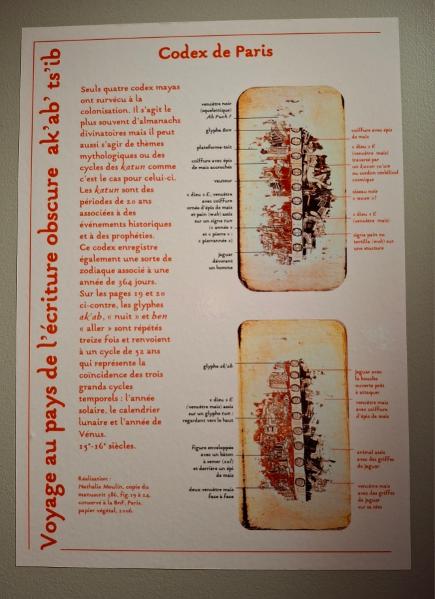 Voyage au pays de l'écriture obscure ak'ab' ts'ib
Codex de Paris
Seuls quatre codex mayas
ont survécu à la
colonisation. Il s'agit le
plus souvent d'almanachs
divinatoires mais il peut
aussi s'agir de thèmes
mythologiques ou des
cycles des katun comme
c'est le cas pour celui-ci.
Les katun sont des
périodes de 20 ans
associées à des
événements historiques
et à des prophéties.
Ce codex enregistre
également une sorte de
zodiaque associé à une
année de 364 jours.
Sur les pages 19 et 20
ci-contre, les glyphes
ak'ab, « nuit » et ben
« aller » sont répétés
treize fois et renvoient
à un cycle de 52 ans
qui représente la
coïncidence des trois
grands cycles
temporels : l'année
solaire, le calendrier
lunaire et l'année de
Vénus.
15e-16e siècles.
Réalisation :
Nathalie Moulin, copie du
manuscrit 386, fig. 19 à 24,
conservé à la BnF, Paris.
papier végétal, 2006.
venuètre noir
(squelettique)
Ah Puch ?
glyphe Ben
plateforme-toit
coiffure avec épis
de maïs accrochés
vautour
« dieu » E, venuètre
avec coiffure
ornée d'épis de maïs
et pain (wah) assis
sur un signe tun
(« année »
et « pierre » :
« pierrannée »)
jaguar
dévorant
un homme
coiffure avec épis
de maïs
« dieu » E
(venuètre maïs)
traversé par
un kuxan su'um
ou cordon ombilical
cosmique
oiseau noir
« dieu » E
(venuètre maïs)
signe pain ou
tortilla (wah) sur
une structure
glyphe ak'ab
« dieu » E
(venuètre maïs) assis
sur un glyphe tun :
regardant vers le haut
figure enveloppée
avec un bâton
à semer (xul)
et derrière un épi
de maïs
deux venuètre maïs
face à face
jaguar avec
la bouche
ouverte prêt
à attaquer
venuètre maïs
avec coiffure
d'épis de maïs
animal assis
avec des griffes
de jaguar
venuètre maïs
avec des griffes
de jaguar
sur sa tête